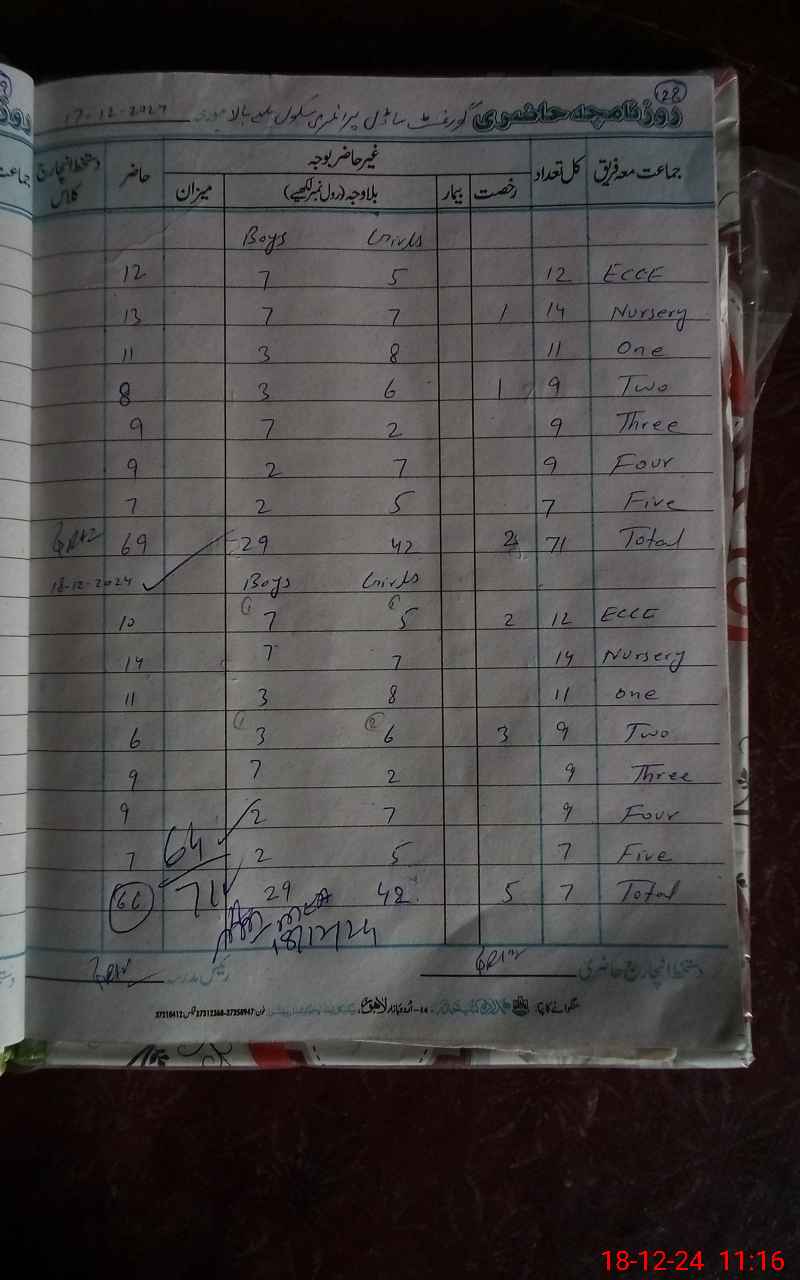 28
روزنامچہ حاضری گورنمنٹ ماڈل پرائمری سکول 17-12-2024
جماعت معہ فریق کل تعداد غیر حاضر بوجہ حاضر دستخط انچارج کلاس
رخصت بیمار بلاوجہ (رول نمبر لکھیے) میزان
Boys Girls
12 7 5 12 ECCE
13 7 7 1 14 Nursery
11 3 8 11 One
8 3 6 1 9 Two
9 7 2 9 Three
9 2 7 9 Four
7 2 5 7 Five
69 29 42 2 71 Total
18-12-2024 Boys Girls
10 7 (1) 5 2 12 ECCE
14 7 7 14 Nursery
11 3 8 11 one
6 (1) 3 (2) 6 3 9 Two
9 7 2 9 Three
9 2 7 9 Four
7 64 2 5 7 Five
66 71 29 42 5 7 Total
18/12/24
دستخط انچارج حاضری رئیس مدرسہ
منگوانے کا پتہ: اردو بازار لاہور فون: 37312368-37358947 37210412
18-12-24 11:16